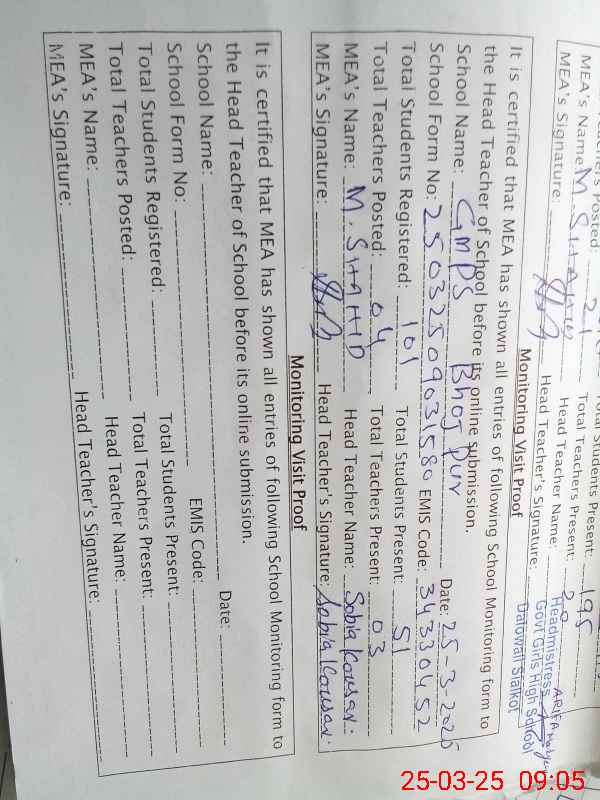 Teachers Posted: 21 Total Teachers Present:
MEA's Name M. SHAHID Head Teacher Name:
MEA's Signature: Head Teacher's Signature:
Total Students Present: 195
Headmistress
Govt Girls High School
Dalowali Sialkot
Monitoring Visit Proof
It is certified that MEA has shown all entries of following School Monitoring form to
the Head Teacher of School before its online submission.
School Name: GMPS Bhoj pur Date: 25-3-2025
School Form No: 25032509031580 EMIS Code: 34330452
Total Students Registered: 101 Total Students Present: 51
Total Teachers Posted: 04 Total Teachers Present: 03
MEA's Name: M. SHAHID Head Teacher Name: Sobia Kousar.
MEA's Signature: Head Teacher's Signature: Sobia Kousar.
Monitoring Visit Proof
It is certified that MEA has shown all entries of following School Monitoring form to
the Head Teacher of School before its online submission.
School Name: Date:
School Form No: EMIS Code:
Total Students Registered: Total Students Present:
Total Teachers Posted: Total Teachers Present:
MEA's Name: Head Teacher Name:
MEA's Signature: Head Teacher's Signature:
25-03-25 09:05